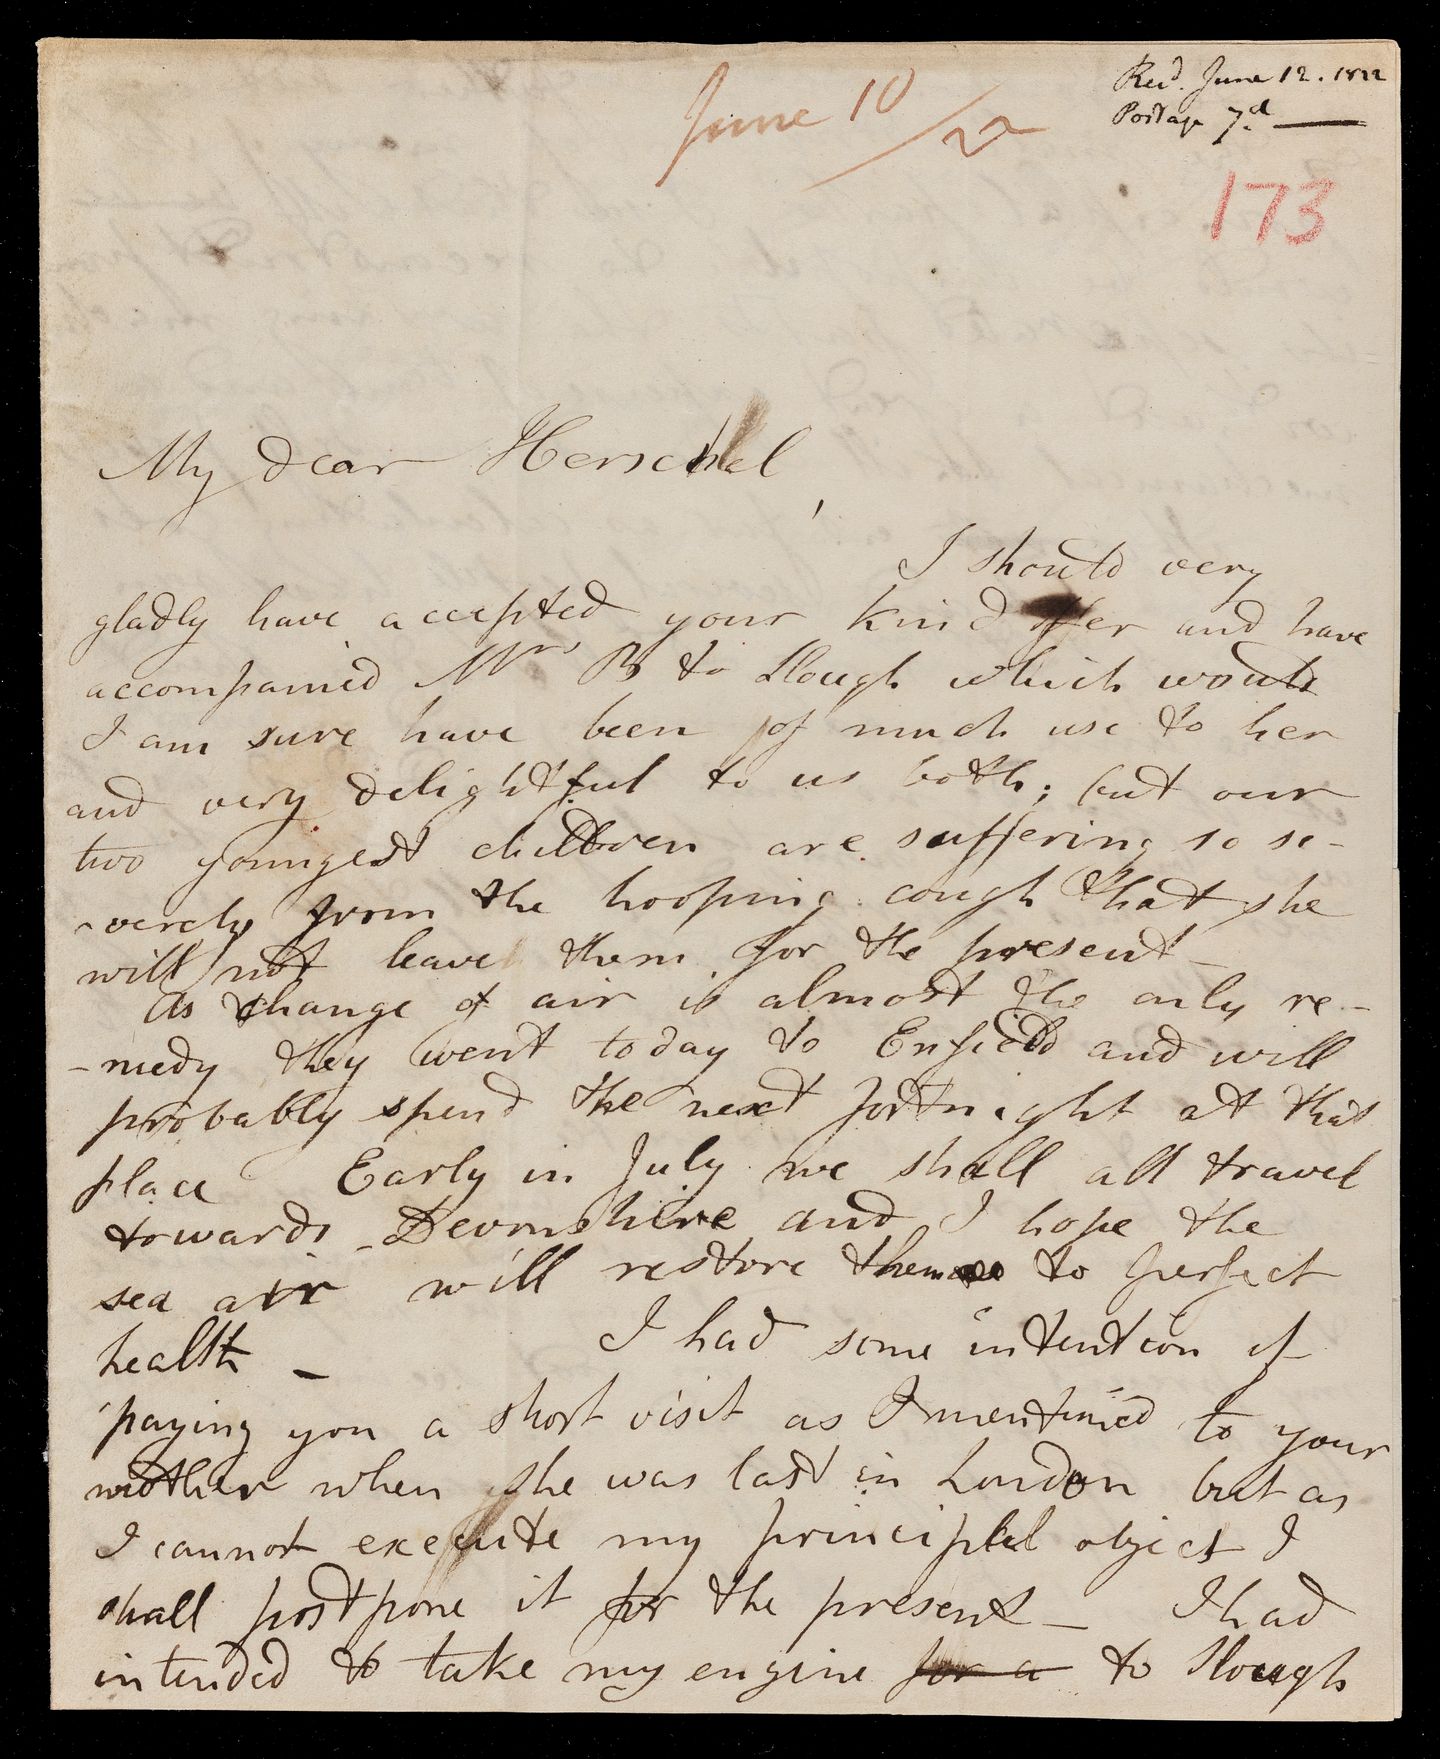 June 10/22
Recd. June 12. 1822
Postage 7d. —
173
My dear Herschel,
I should very
gladly have accepted your kind offer and have
accompanied Mrs B to Slough which would
I am sure have been of much use to her
and very delightful to us both; but our
two youngest children are suffering so se-
-verely from the hooping cough that she
will not leave them for the present –
As change of air is almost the only re-
-medy they went today to Enfield and will
probably spend the next fortnight at that
place Early in July we shall all travel
towards Devonshire and I hope the
sea air will restore them to perfect
health – I had some intention of
paying you a short visit as I mentioned to your
mother when she was last in London but as
I cannot execute my principal object I
shall postpone it for the present – I had
intended to take my engine for a to Slough